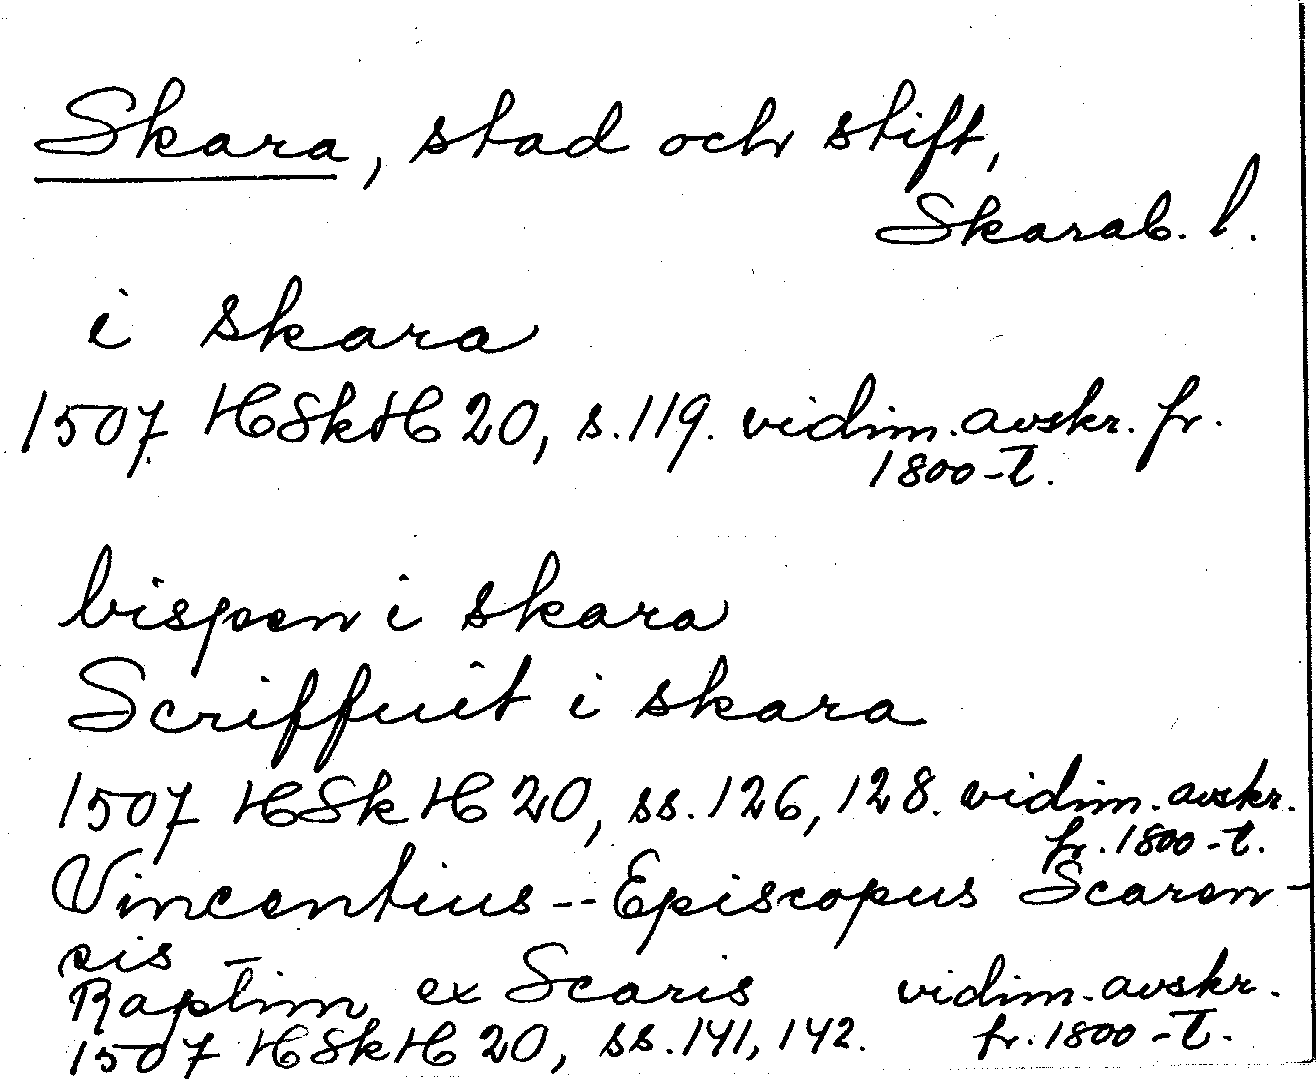 Skara, stad och stift,
Skarab. l.
i skara
1507 HSkH 20, s. 119. vidim. avskr. fr.
1800-t.
bispen i skara
Scriffuit i skara
1507 HSkH 20, ss. 126, 128. vidim. avskr.
fr. 1800-t.
Vincentius -- Episcopus Scaren-
cis
Raptim ex Scaris vidim. avskr.
1507 HSkH 20, ss. 141, 142. fr. 1800-t.